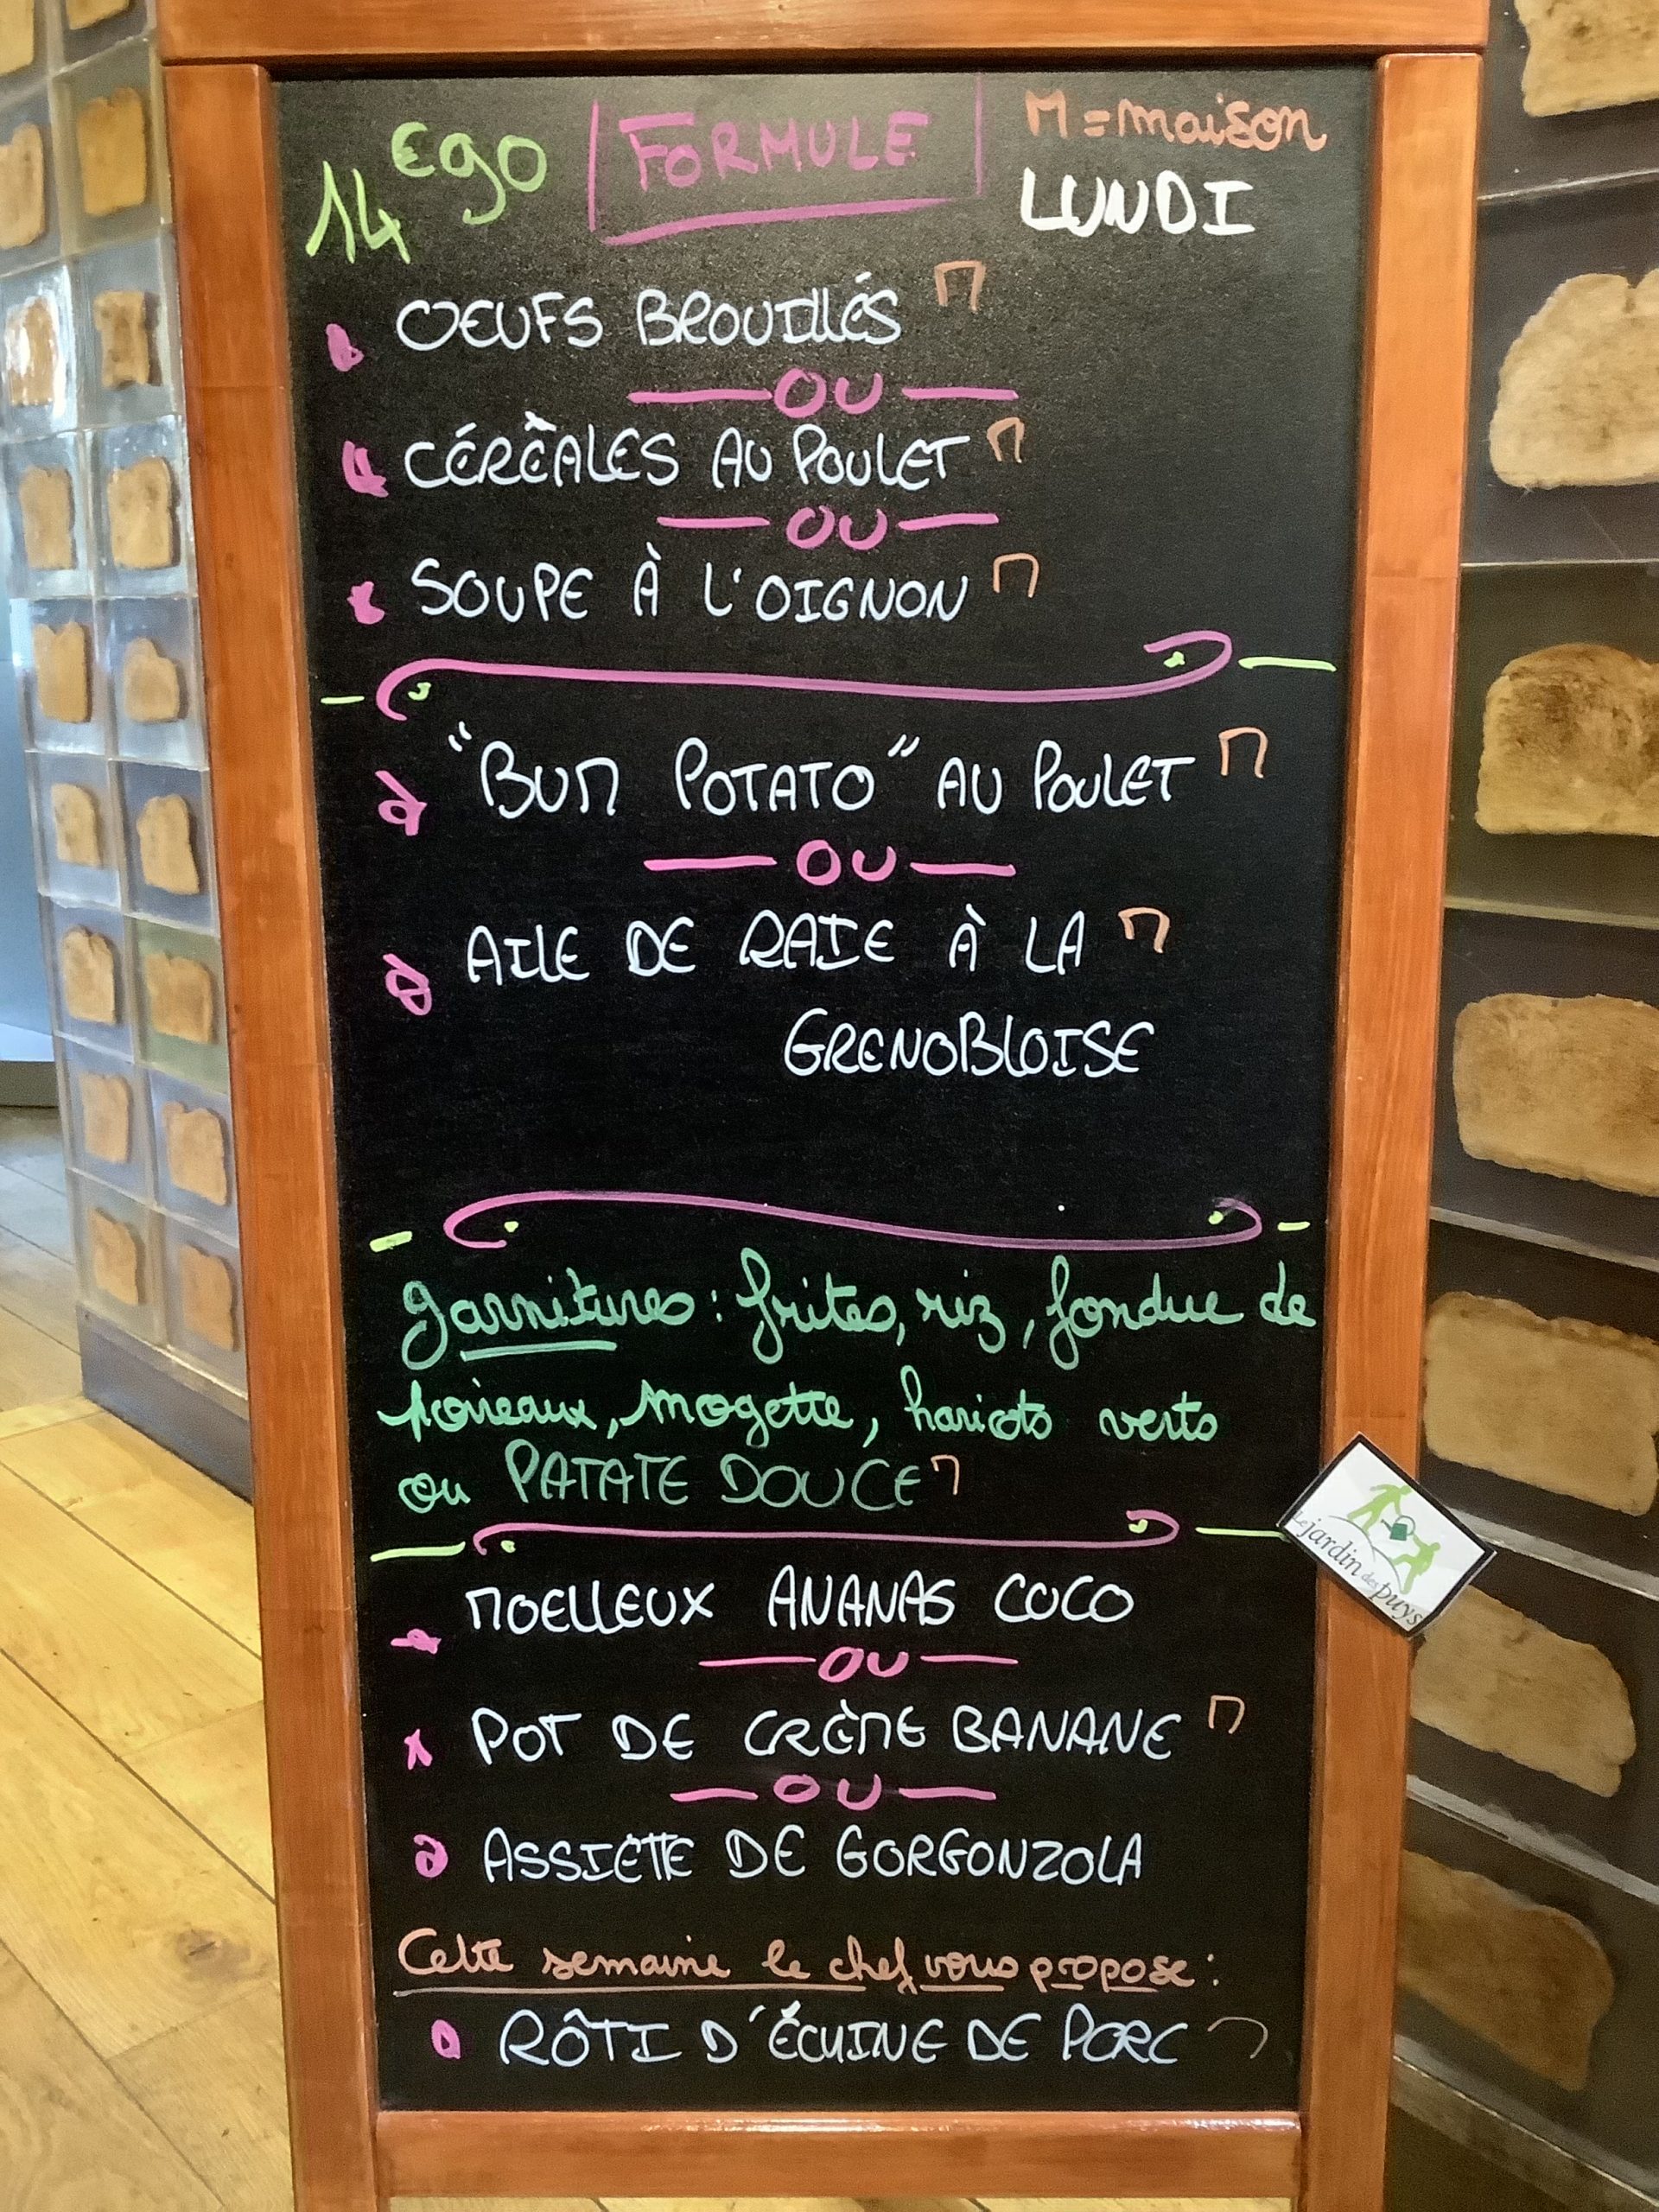 14€90 FORMULE M=maison
LUNDI
OEUFS BROUILLÉS M
OU
CÉRÈALES AU POULET M
OU
SOUPE À L'OIGNON M
"BUM POTATO" AU POULET M
OU
AILE DE RAIE À LA M
GRENOBLOISE
garnitures : frites, riz, fondue de
poireaux, mogette, haricots verts
ou PATATE DOUCE M
MOELLEUX ANANAS COCO
OU
POT DE CRÈME BANANE M
OU
ASSIETTE DE GORGONZOLA
Cette semaine le chef vous propose :
RÔTI D'ÉCHINE DE PORC M
Le jardin des puys